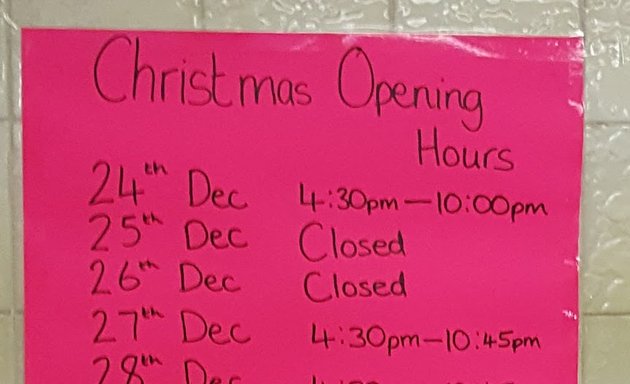 Christmas Opening
Hours
24th Dec 4:30pm—10:00pm
25th Dec Closed
26th Dec Closed
27th Dec 4:30pm—10:45pm
28th Dec